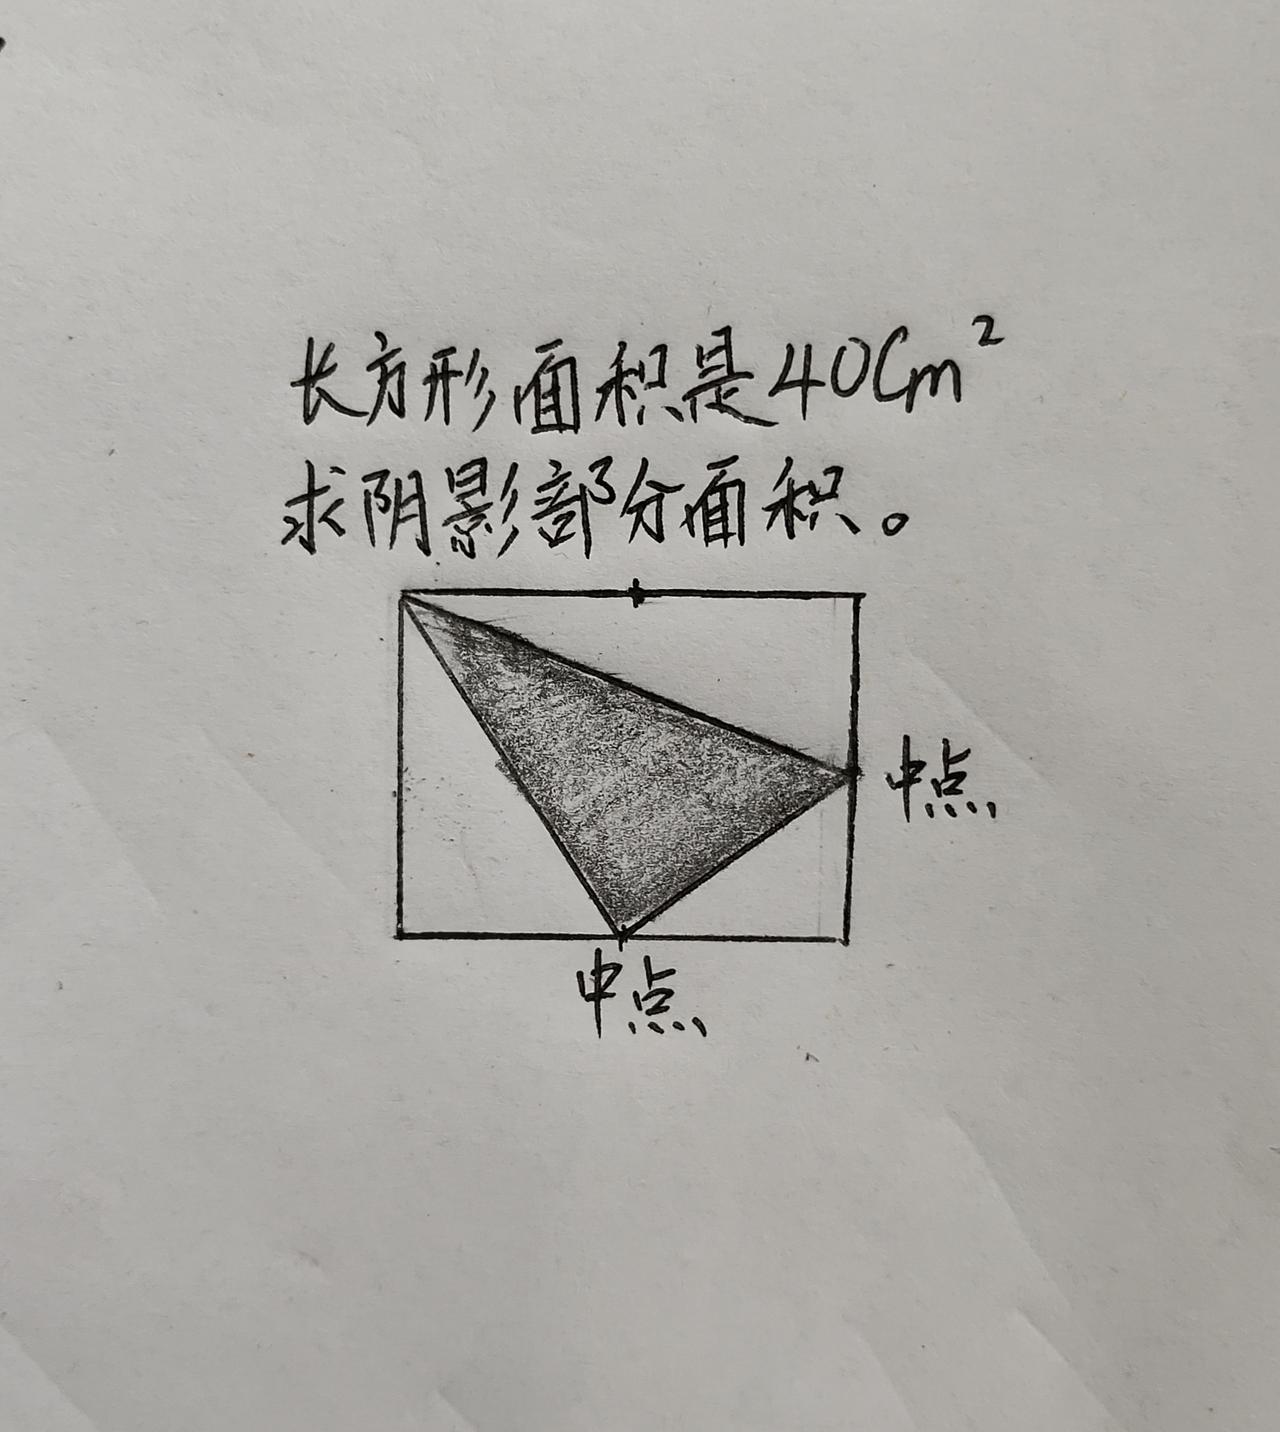 长方形面积是40Cm²
求阴影部分面积。
中点
中点